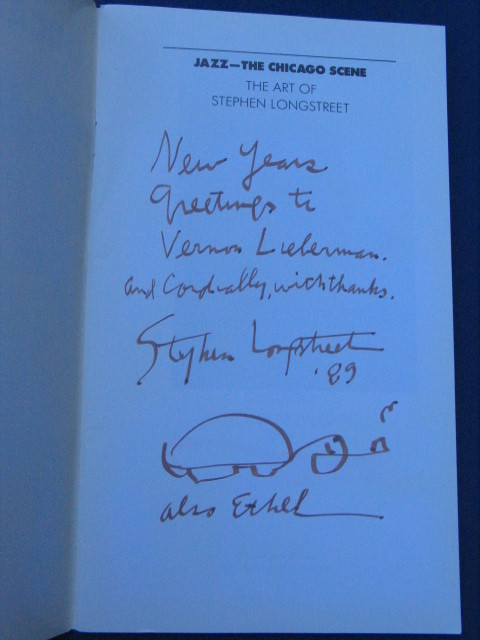 JAZZ—THE CHICAGO SCENE
THE ART OF
STEPHEN LONGSTREET
New Years
Greetings to
Vernon Lieberman.
and Cordially, with thanks.
Stephen Longstreet
'89
also Ethel